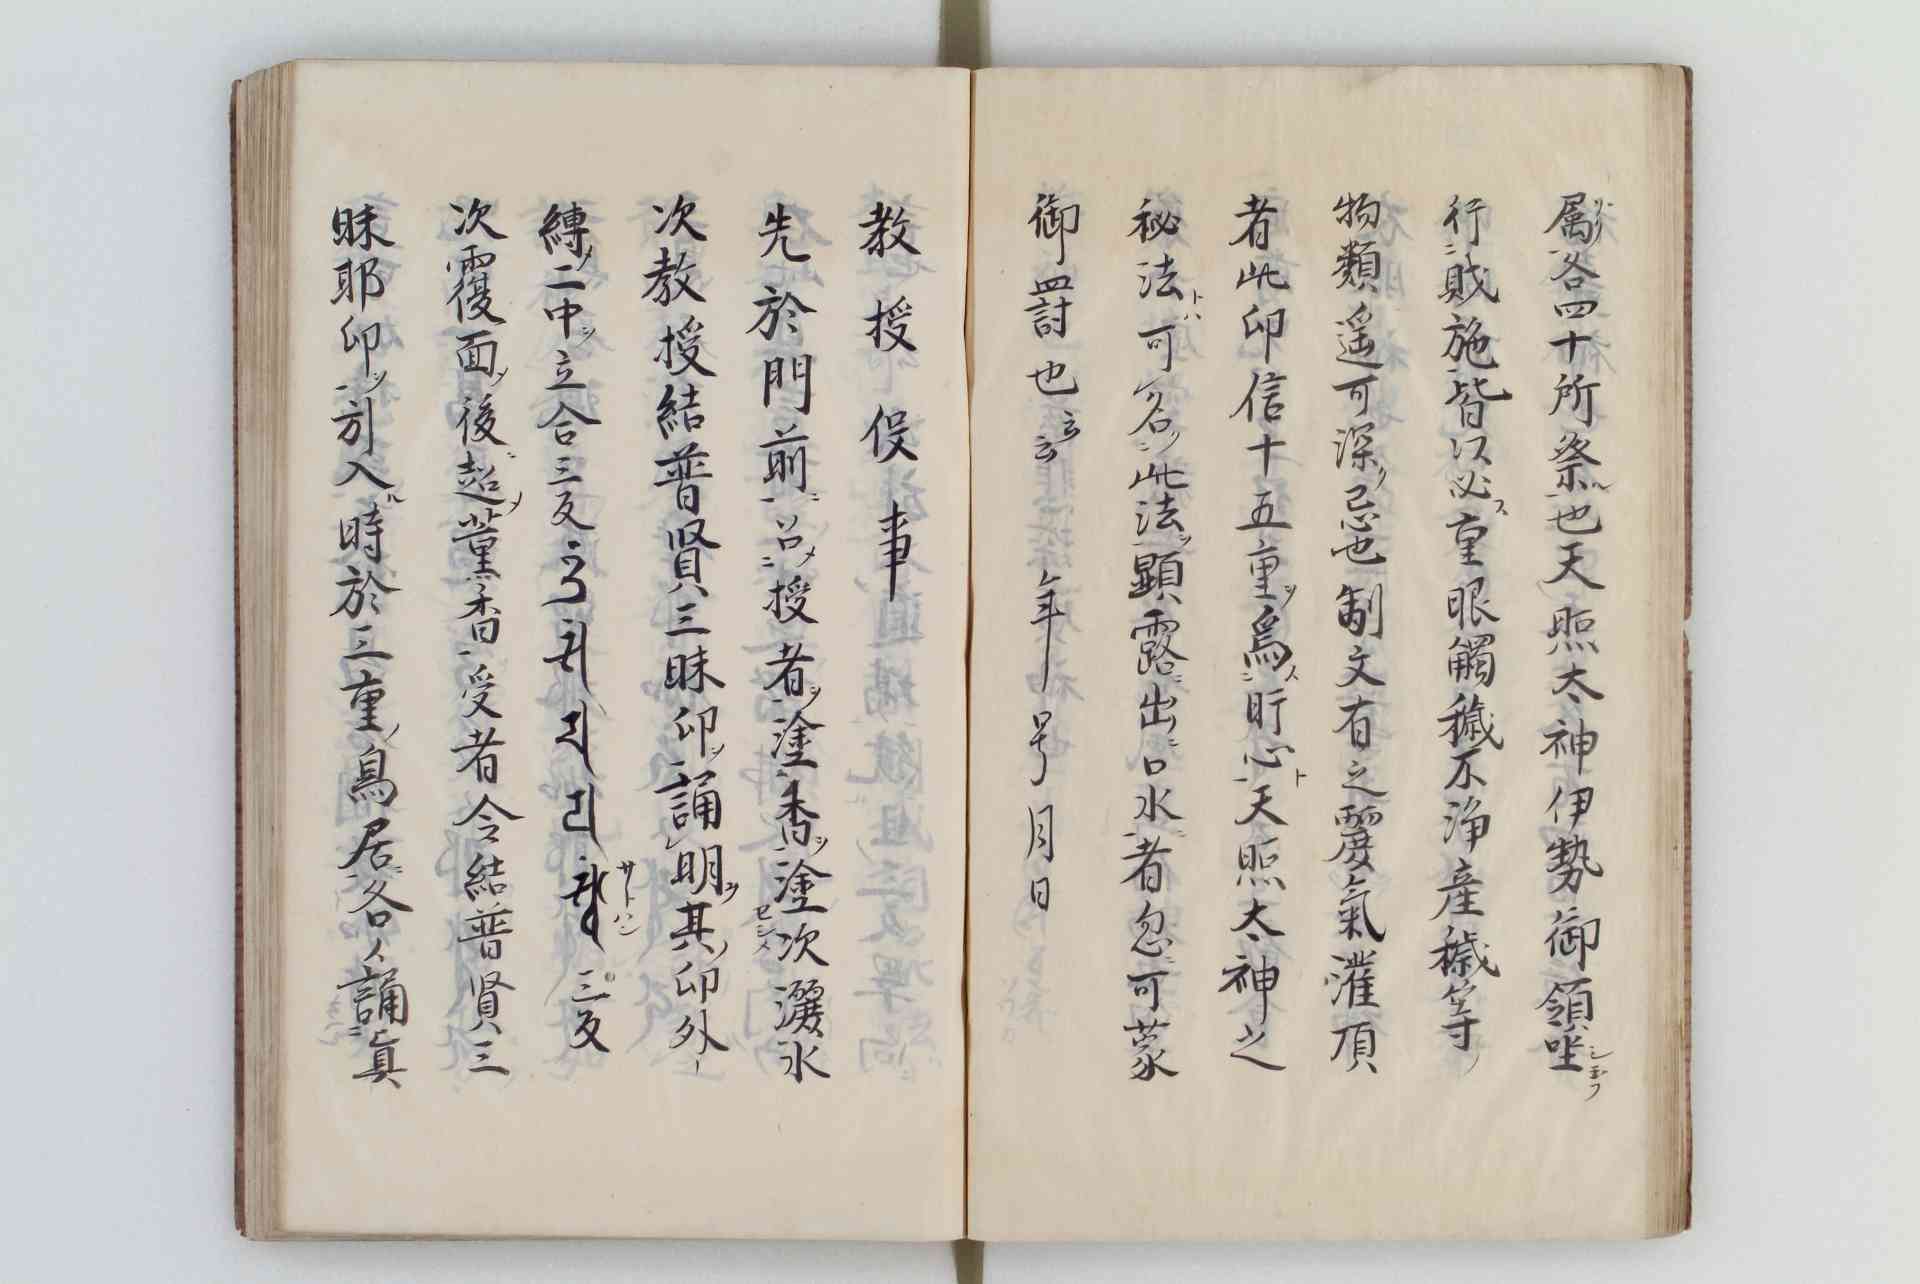 属各四十所祭也天照太神伊勢御領坐
行賎施皆以必重眼觸穢不浄産穢等
物類遥可深忌也制文有之麗氣灌頂
者此印信十五重為肝心天照太神之
秘法可名此法顕露出口外者忽可蒙
御罸也云云 年号月日
教授作事
先於門前召授者塗香塗次灑水
次教授結普賢三昧印誦明其印外
縛二中立合三反 三反
次覆面後超薫香受者令結普賢三
昧耶印引入時於三重鳥居各々誦真